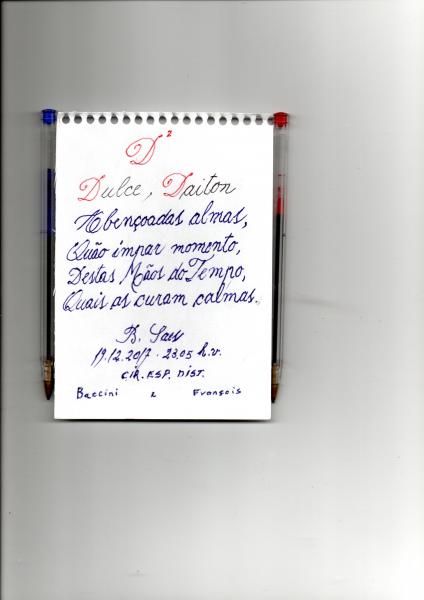 D²
Dulce, Daiton
Abençoadas almas,
Quão ímpar momento,
Destas Mãos do Tempo,
Quais as curam calmas.
B. Saes
19.12.2017 - 23.05 h.v.
CIR. ESP. DIST.
Baccini e François